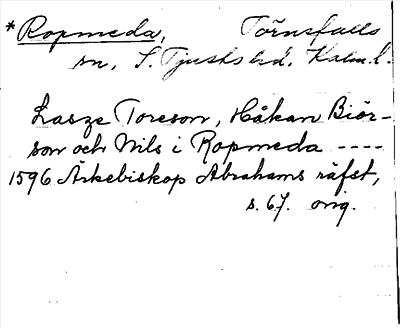 *Ropmeda, Törnsfalls
sn, S. Tjusts hd, Kalm. l.
Lasze Toreson, Håkan Biör-
son och Nils i Ropmeda ----
1596 Ärkebiskop Abrahams räfst,
s. 67. orig.